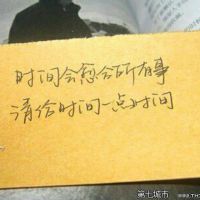 时间会愈合所有事
请给时间一点时间
第七城市